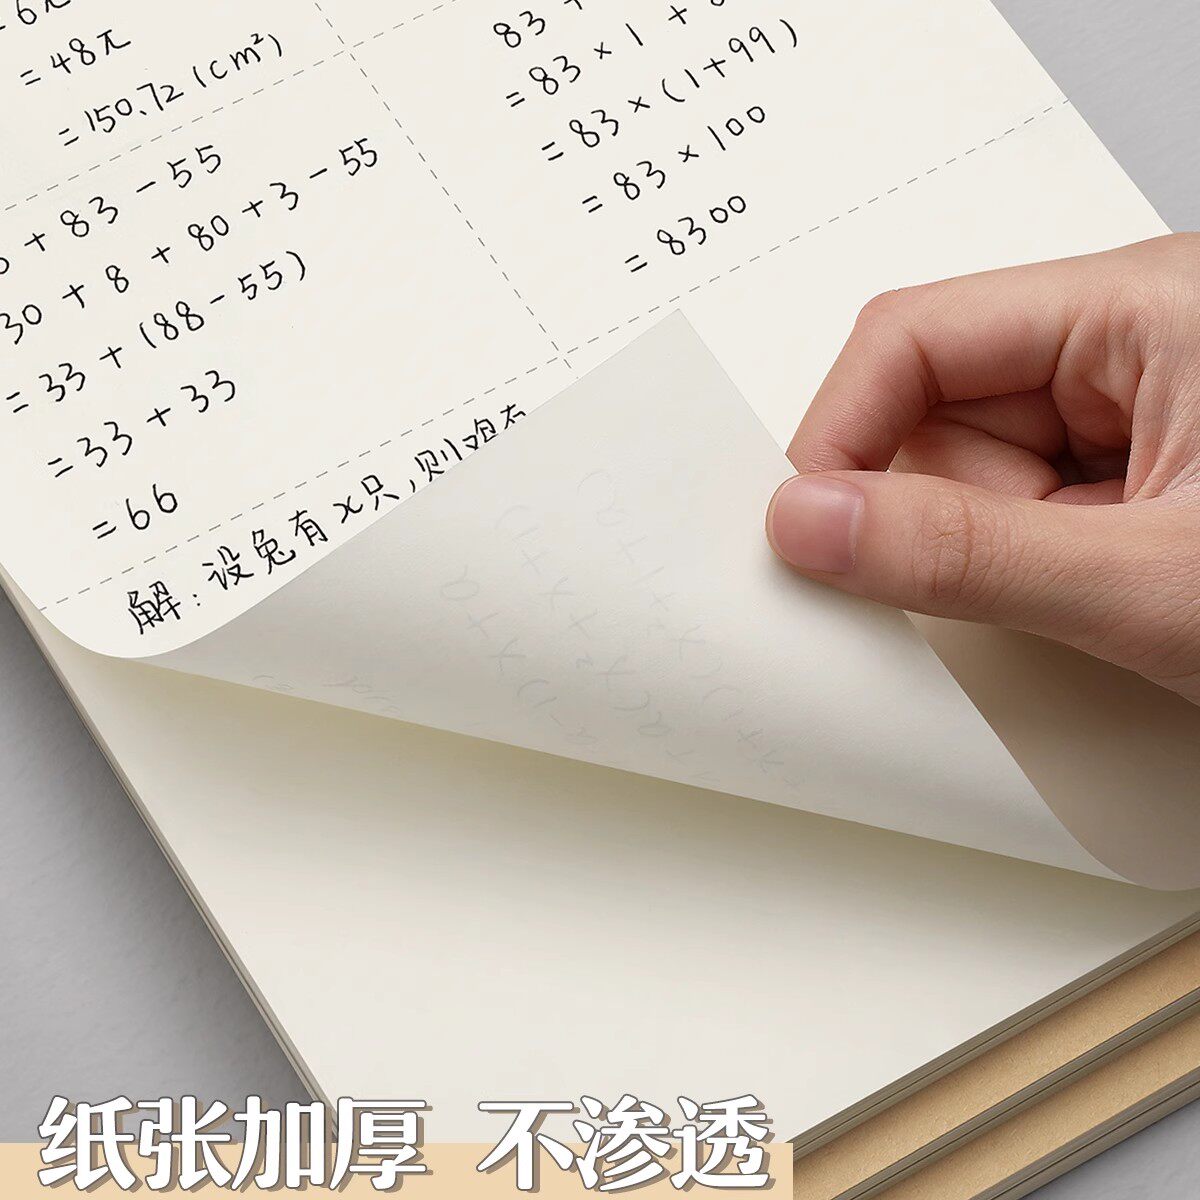 = 48π
= 150.72 (cm²)
+ 83 - 55
30 + 8 + 80 + 3 - 55
= 33 + (88 - 55)
= 33 + 33
= 66
83 +
= 83 × 1 +
= 83 × (1 + 99)
= 83 × 100
= 8300
解：设兔有x只，则鸡有
纸张加厚 不渗透